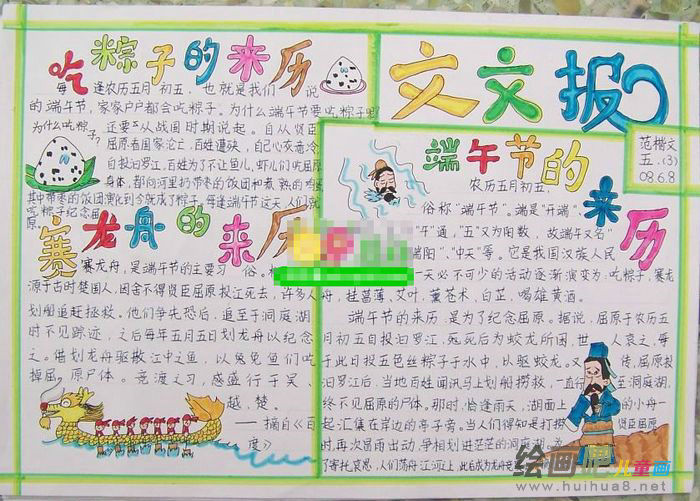 吃粽子的来历
每逢农历五月初五，也就是我们说
的端午节，家家户户都会吃粽子。为什么端午节要吃粽子呢
为什么吃粽子？
还要从战国时期说起。自从贤臣
屈原看国家危亡、百姓遭殃，自己心灰意冷
自投汨罗江，百姓为了不让鱼儿、虾儿们吃屈原
身体，都向河里扔带枣的饭团和煮熟的鸡蛋
其中带枣的饭团演化到今就成了粽子。每逢端午节这天，人们就
吃粽子纪念屈
原。
赛龙舟的来历
赛龙舟，是端午节的主要习俗。
源于古时楚国人，因舍不得贤臣屈原投江死去，许多人
划船追赶拯救。他们争先恐后，追至于洞庭湖
时不见踪迹，之后每年五月五日划龙舟以纪念
之。借划龙舟驱散江中之鱼，以免鱼们吃
掉屈原尸体。竞渡之习，感盛行于吴、
越、楚。
——摘自《百
度》
文文报
范楷文
五.(3)
08.6.8
端午节的来历
农历五月初五，
俗称“端午节”。端是“开端”、
“午”通，“五”又为阳数，故端午又名“
端阳”、“中天”等。它是我国汉族人民
一天必不可少的活动逐渐演变为：吃粽子，赛龙
舟，挂菖蒲，艾叶，薰苍术，白芷，喝雄黄酒。
端午节的来历，是为了纪念屈原。据说，屈原于农历五
月初五自投汨罗江，死后为蛟龙所困，世人哀之，每
于此日投五色丝粽子于水中，以驱蛟龙。又传，屈原投
汨罗江后，当地百姓闻讯马上划船捞救，一直行至洞庭湖，
终不见屈原的尸体。那时，恰逢雨天，湖面上的小舟一
起汇集在岸边的亭子旁。当人们得知是打捞贤臣屈原
时，再次冒雨出动，争相划进茫茫的洞庭湖。为
了寄托哀思，人们荡舟江河上，此后
绘画吧儿童画
www.huihua8.net